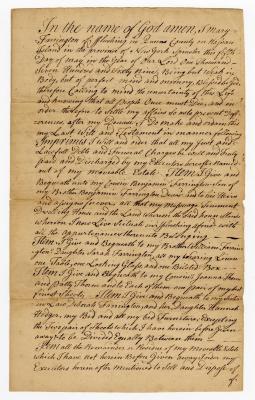 In the name of God amen, I Mary
Farrington of Flushing in Queens County on Nassau
Island in the province of New York Spinster this fifth
Day of may in the Year of our Lord One thousand
Seven Hundred and Sixty Nine, Being but Weak in
Body, but of perfect mind and memory, Blessed be God
therefore Calling to mind the uncertainty of this Life
and knowing that all People Once must Die, and in
order therefore to Settle my affairs so as to prevent Diff-
erences after my Decease, Do make and ordain this
my Last Will and Testament in manner following
Imprimis I Will and order that all my Just and
Lawfull Debts and funeral Charges be well and truly
paid and Discharged by my Executors hereafter Named
out of my moveable Estate. Item, I Give and
Bequeath unto my Cousin Benjamin Farrington Son of
my Brother Benjamin Farrington Deceased and to his Heirs
and assigns forever all that my Messuage Tenement
Dwelling House and the Land whereon the said house Stands
wherein I now Live Scituate in flushing aforesd with
all the appurtenances thereunto Belonging
Item, I Give and Bequeath to my Brother William Farring-
tons Daughter Sarah Farrington, all my wearing Linnen
one Table, one Looking Glass and one Bilsted Box
Item I Give and Bequeath to my Cousins Joanna Thorn
and Patty Thorn and to Each of them one pair of my best
finest Sheets, Item, I Give and Bequeath to my Sister
in Law Deborah Farrington and her Daughter Hannah
Hedger, my Bed and all my bed furniture Excepting
the two pair of Sheets which I have herein before Given
away to be Divided Equally Between them
Item all the Remainder or Residue of my Moveable Estate
which I have not herein Before Given away I order my
Executors herein after Mentioned to Sell and Dispose of